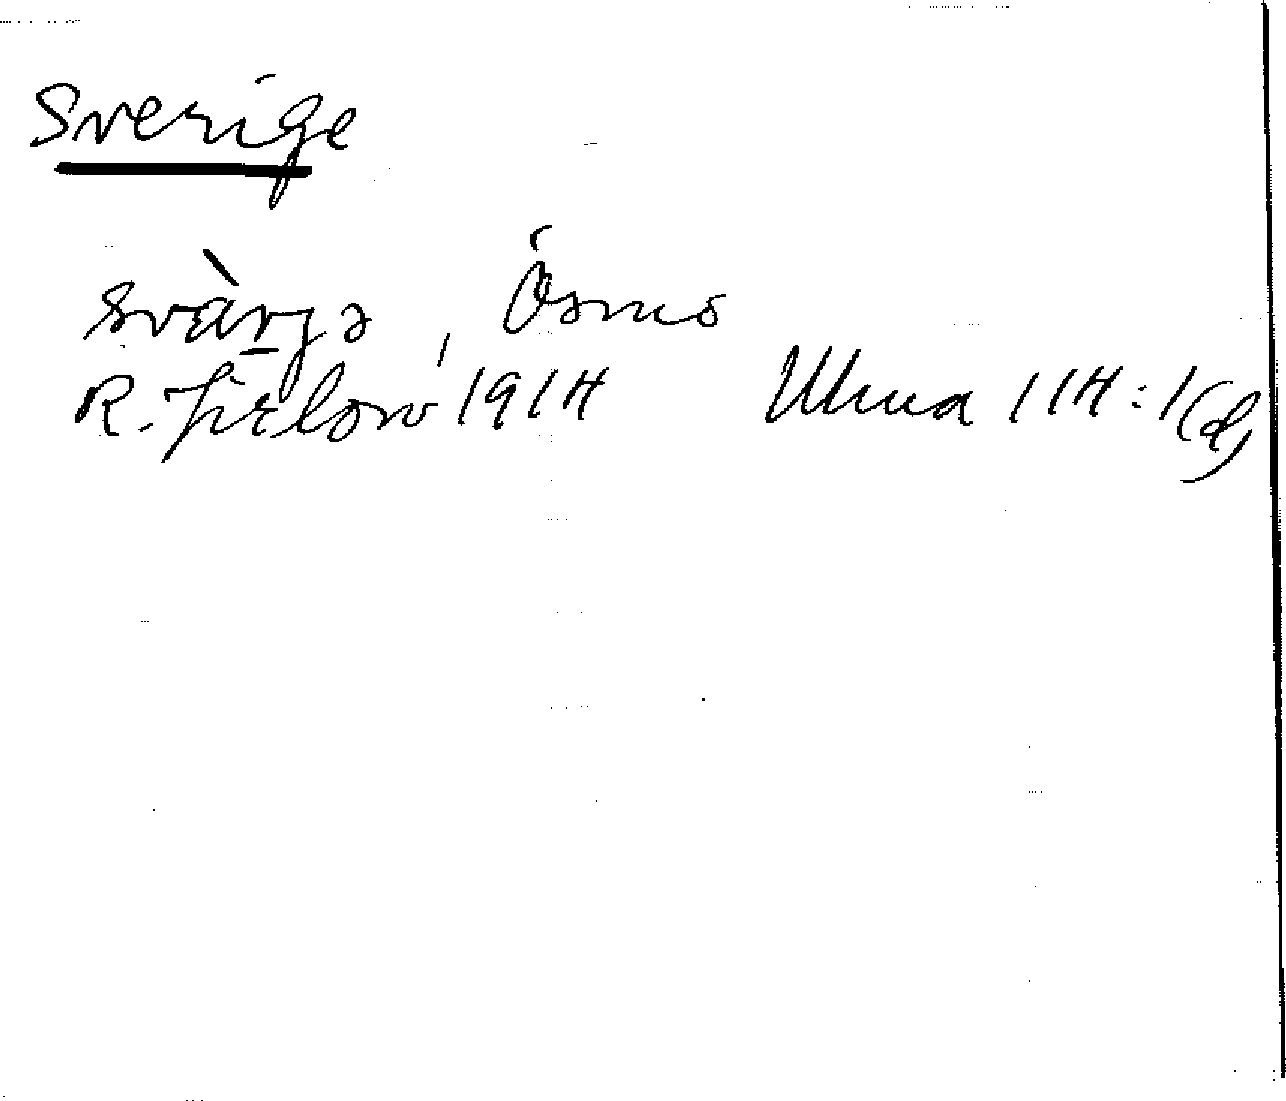 Sverige
svàrjə, Ösmo
R. Jirlow 1914 Ulma 114:1(d)